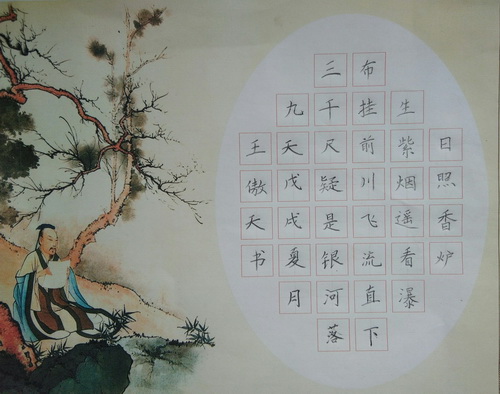 日照香炉
生紫烟遥看瀑
布挂前川飞流直下
三千尺疑是银河落
九天戊戌夏月
王傲天书